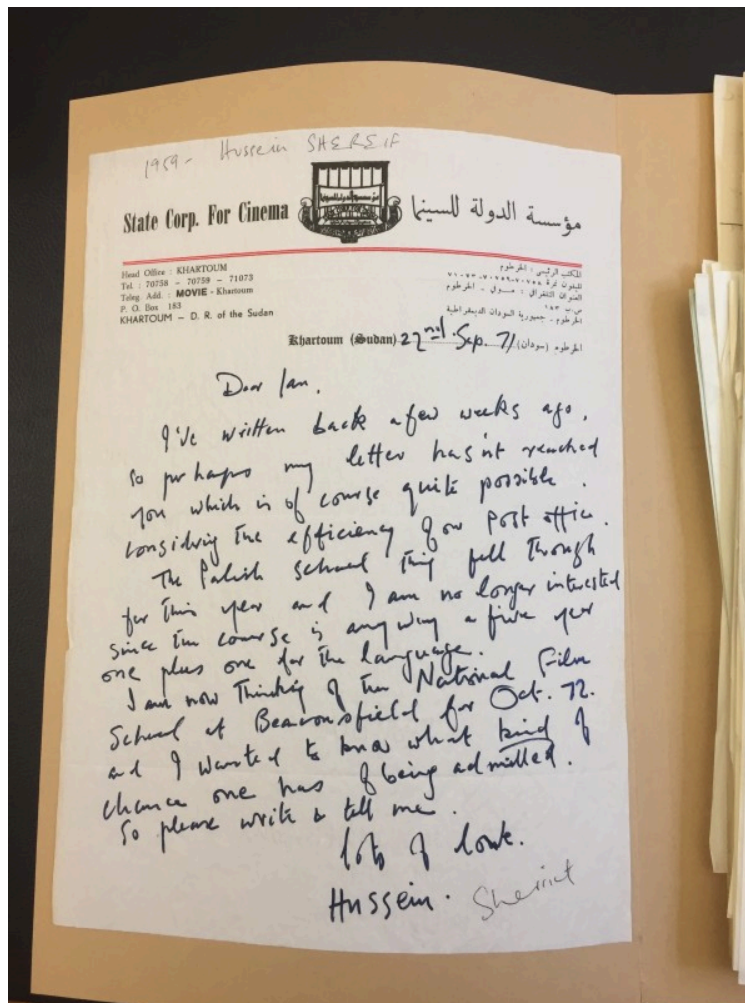 1959- Hussein SHEREIF
State Corp. For Cinema
مؤسسة الدولة للسينما
Head Office : KHARTOUM
Tel. : 70758 - 70759 - 71073
Teleg. Add. : MOVIE - Khartoum
P. O. Box 183
KHARTOUM – D. R. of the Sudan
المكتب الرئيسي : الخرطوم
العنوان التلغرافي : موفي - الخرطوم
ص.ب ١٨٣
الخرطوم - جمهورية السودان الديمقراطية
Khartoum (Sudan) 22nd. Sep. 71 الخرطوم (سودان)
Dear Ian,
I've written back a few weeks ago,
so perhaps my letter hasn't reached
you which is of course quite possible
considring the efficiency of our post office.
The Polish school thing fell through
for this year and I am no longer interested
since the course is anyway a five year
one plus one for the language.
I am now thinking of the National Film
School at Beaconsfield for Oct. 72.
and I wanted to know what kind of
chance one has of being admitted.
So please write & tell me.
lots of love.
Hussein. Sherriet